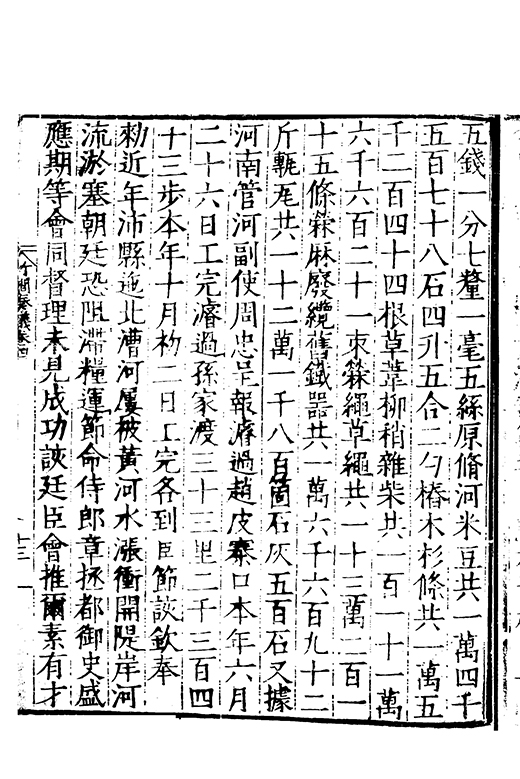 五錢一分七釐一毫五絲原脩河米豆共一萬四千
五百七十八石四升五合二勺樁木杉條共一萬五
千二百四十四根草葦柳稍雜柴共一百一十一萬
六千六百二十一束䋁繩草繩共一十三萬二百一
十五條䋁麻廢纜舊鐵器共一萬六千六百九十二
斤甎瓦共一十二萬一千八百箇石灰五百石又據
河南管河副使周忠呈報濬過趙皮寨口本年六月
二十六日工完濬過孫家渡三十三里二千三百四
十三步本年十月初二日工完各到臣節該欽奉
勑近年沛縣迤北漕河屢被黃河水漲衝開隄岸河
流淤塞朝廷恐阻滯糧運節命侍郎章拯都御史盛
應期等會同督理未見成功該廷臣會推爾素有才
竹澗奏議卷四
十三